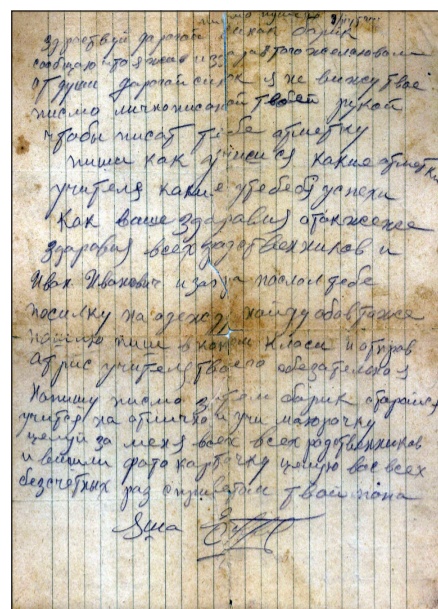 письмо
здраствуй дарагой сынак барик
сообщаю что я жив и здаров того же желаю вам
от души дарагой сынак я не вижу твое
писмо личнописаной твоей рукой
чтобы писат тебе атметку
пиши как учишся какие атметки
учителя какие утебебя успехи
Как ваше здаравия атакжеже
здаравия всех радственников и
Иван Иванович и я послал тебе
посилку на адежду найду абавтаже
пошлю пиши в каком класи и отправ
атрис учителя твоего обезателбоая
Напишу писмо барик старайся
учится на атлична и учи маюрочку
целуй за меня всех всех радственников
и вышли фото карточку целую вас всех
безсчетных раз с приветам твой папа
Яша